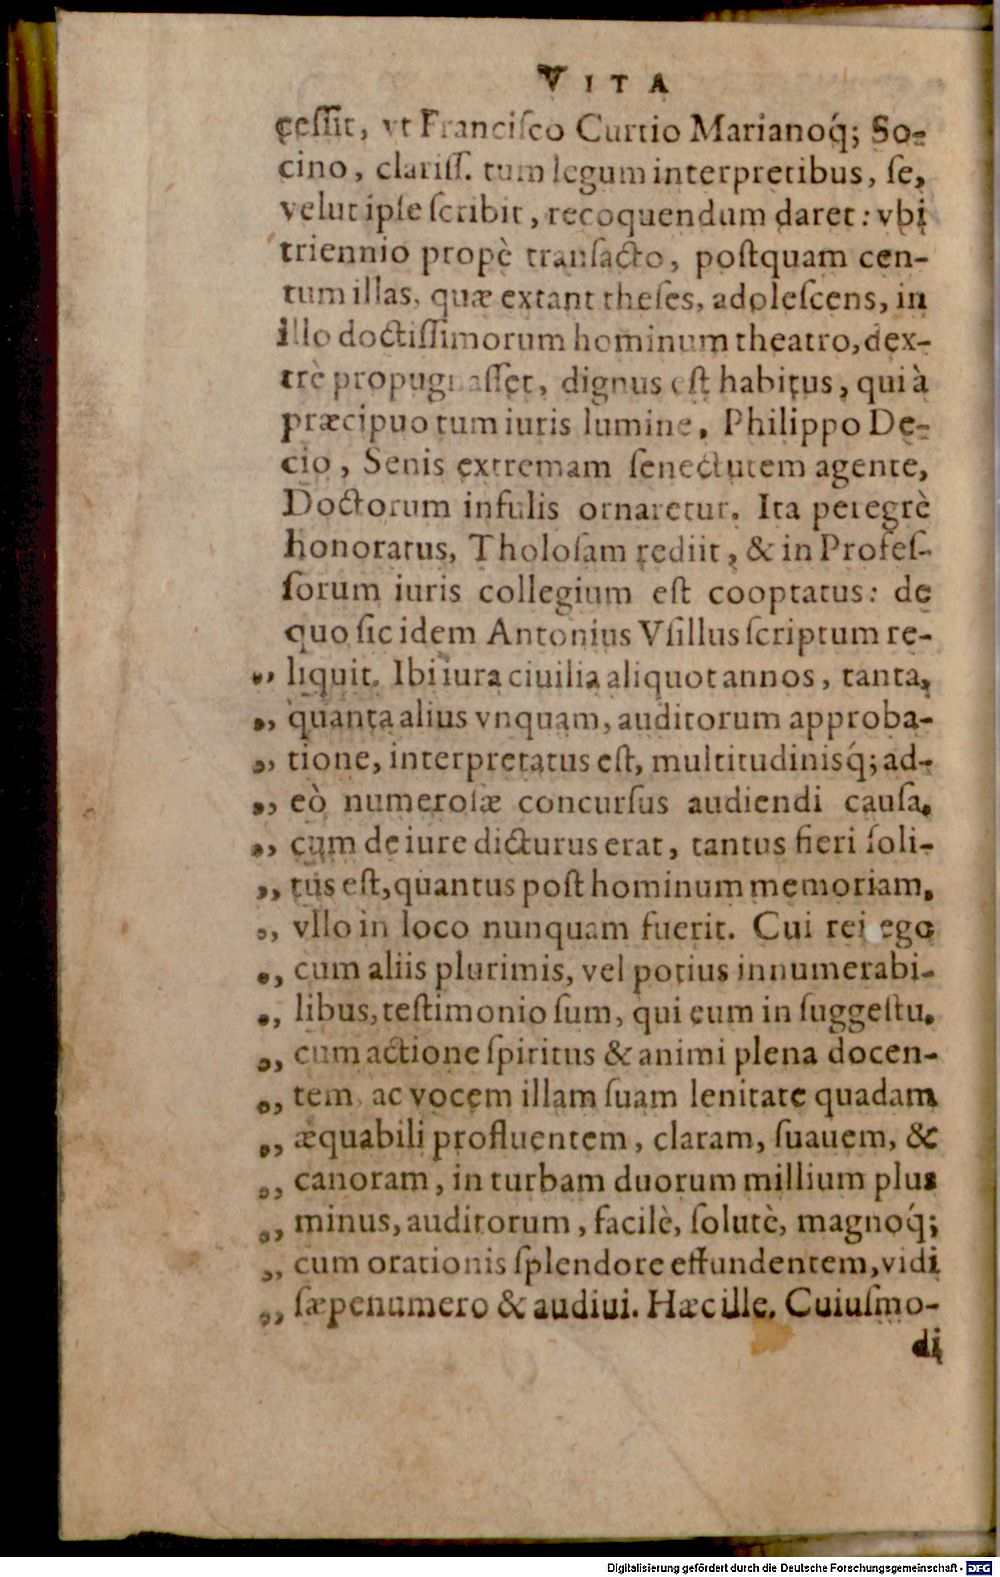 VITA
cessit, vt Francisco Curtio Marianoq́; So-
cino, clariſſ. tum legum interpretibus, ſe,
velut ipſe ſcribit, recoquendum daret: vbi
triennio propè tranſacto, poſtquam cen-
tum illas, quæ extant theſes, adoleſcens, in
illo doctiſſimorum hominum theatro, dex-
trè propugnaſſet, dignus eſt habitus, qui à
præcipuo tum iuris lumine, Philippo De-
cio, Senis extremam ſenectutem agente,
Doctorum infulis ornaretur. Ita peregrè
honoratus, Tholoſam rediit, & in Profeſ-
ſorum iuris collegium eſt cooptatus: de
quo ſic idem Antonius Vſillus ſcriptum re-
„ liquit. Ibi iura ciuilia aliquot annos, tanta,
„ quanta alius vnquam, auditorum approba-
„ tione, interpretatus eſt, multitudinisq́; ad-
„ eò numeroſæ concurſus audiendi cauſa,
„ cum de iure dicturus erat, tantus fieri ſoli-
„ tus eſt, quantus poſt hominum memoriam,
„ vllo in loco nunquam fuerit. Cui rei ego
„ cum aliis plurimis, vel potius innumerabi-
„ libus, teſtimonio ſum, qui eum in ſuggeſtu,
„ cum actione ſpiritus & animi plena docen-
„ tem, ac vocem illam ſuam lenitate quadam
„ æquabili profluentem, claram, ſuauem, &
„ canoram, in turbam duorum millium plus
„ minus, auditorum, facilè, ſolutè, magnoq́;
„ cum orationis ſplendore effundentem, vidi
„ ſæpenumero & audiui. Hæc ille. Cuiuſmo-
di
Digitalisierung gefördert durch die Deutsche Forschungsgemeinschaft - DFG